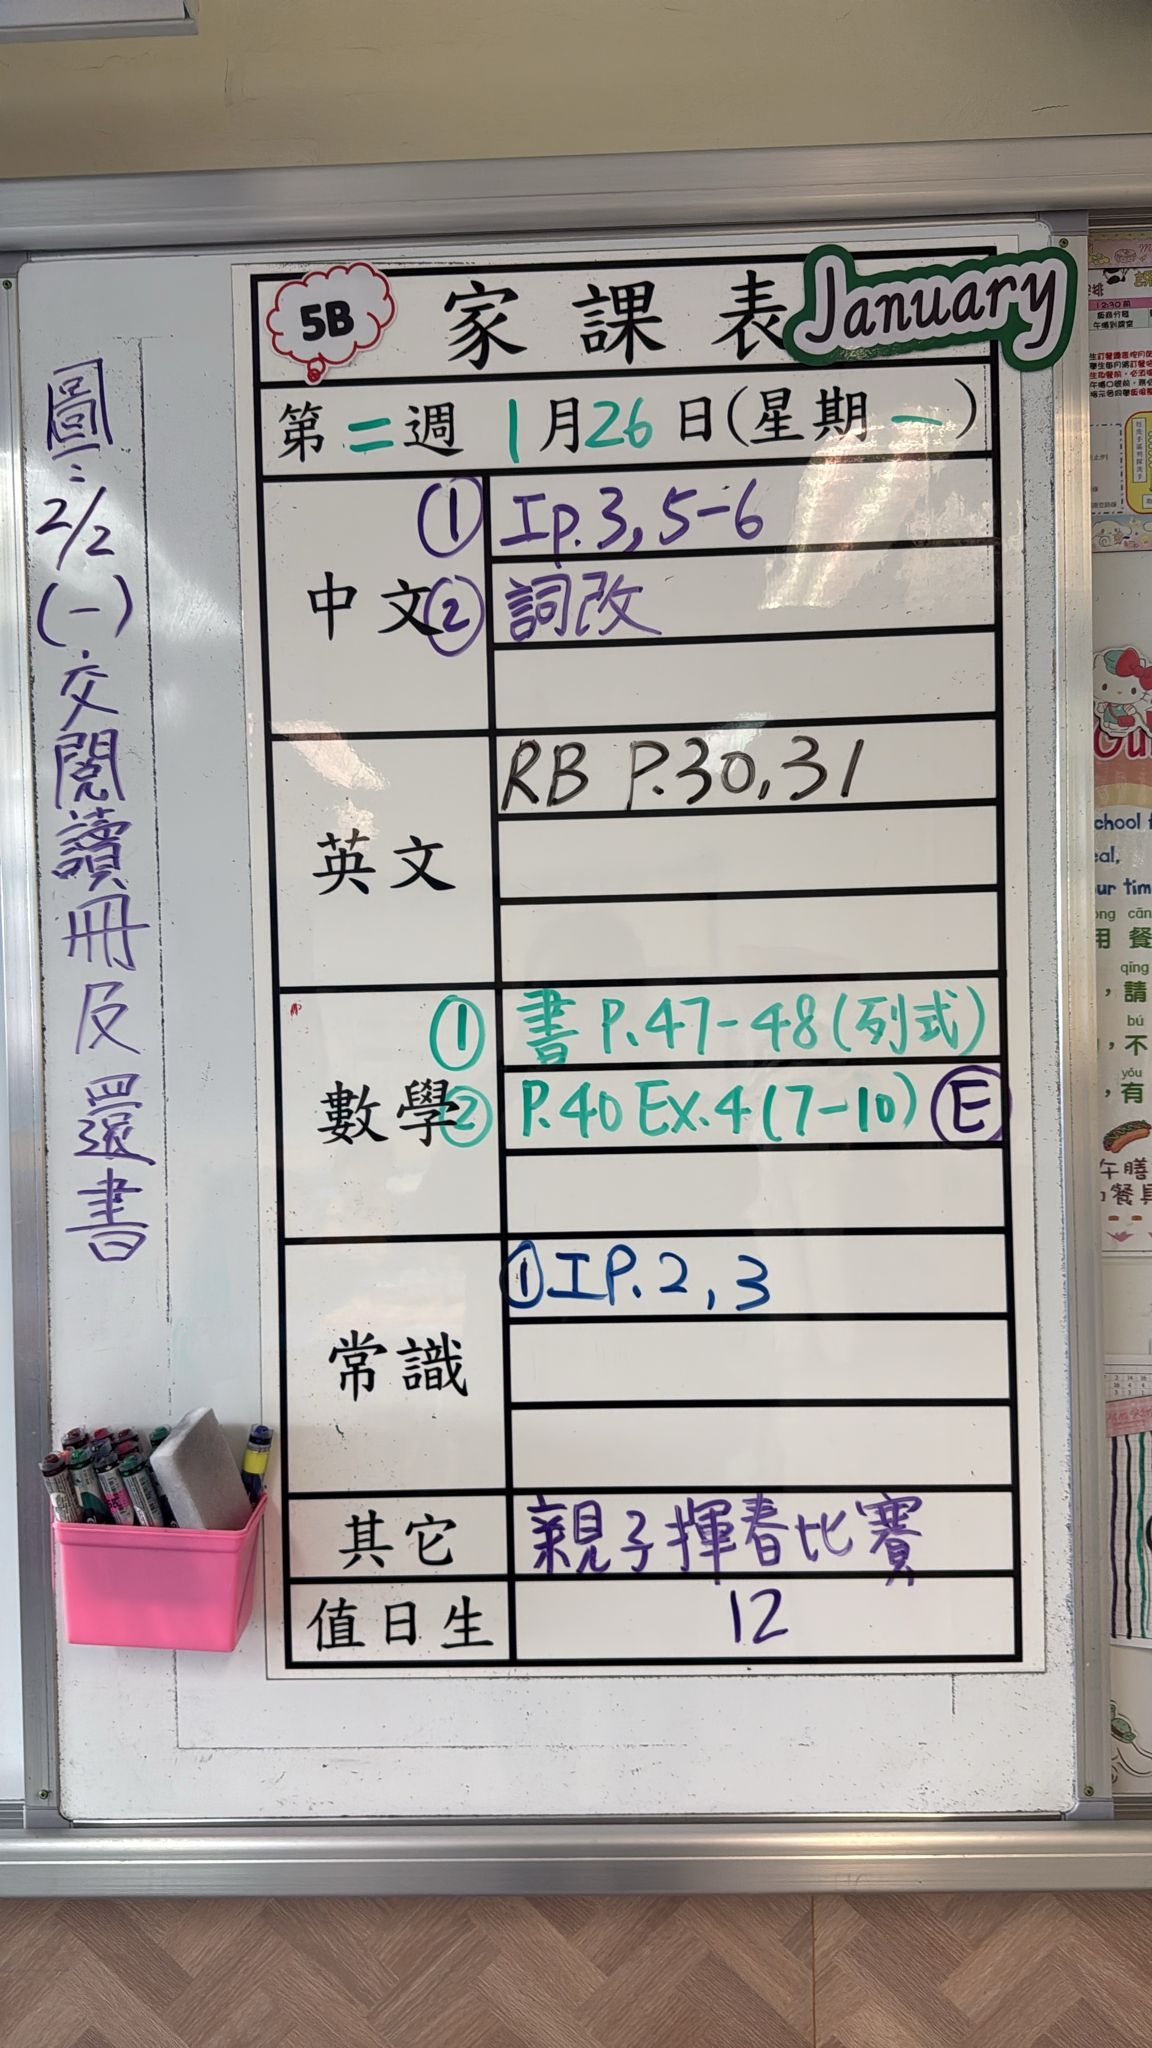 5B 家課表 January
第二週 1月26日(星期一)
中文
① Ip.3,5-6
② 詞改
英文
RB P.30,31
數學
① 書 P.47-48(列式)
② P.40 Ex.4(7-10) Ⓔ
常識
①IP.2,3
其它 親子揮春比賽
值日生 12
圖:2/2(一)交閱讀冊及還書
12:30前
chool
eal,
ur tim
用餐
qǐng
,請
bú
,不
yóu
,有
午膳
餐具